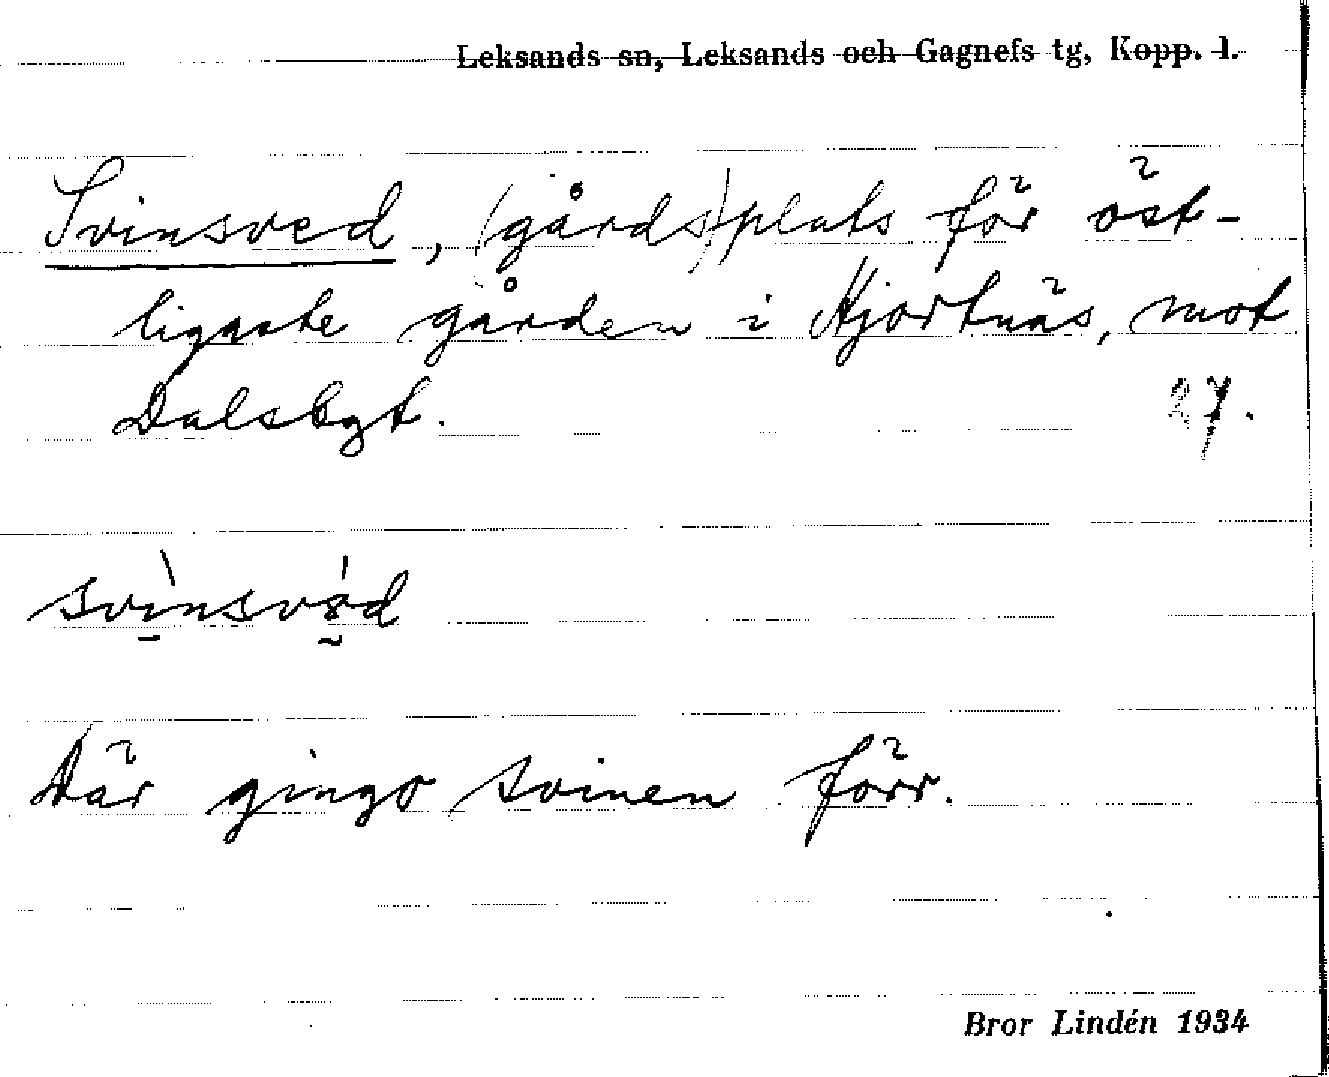 Leksands sn, Leksands och Gagnefs tg, Kopp. l.
Svinsved, (gårds)plats för öst-
ligaste gården i Hjortnäs, mot
Dalsbyt. 27.
Där gingo svinen förr.
Bror Lindén 1934